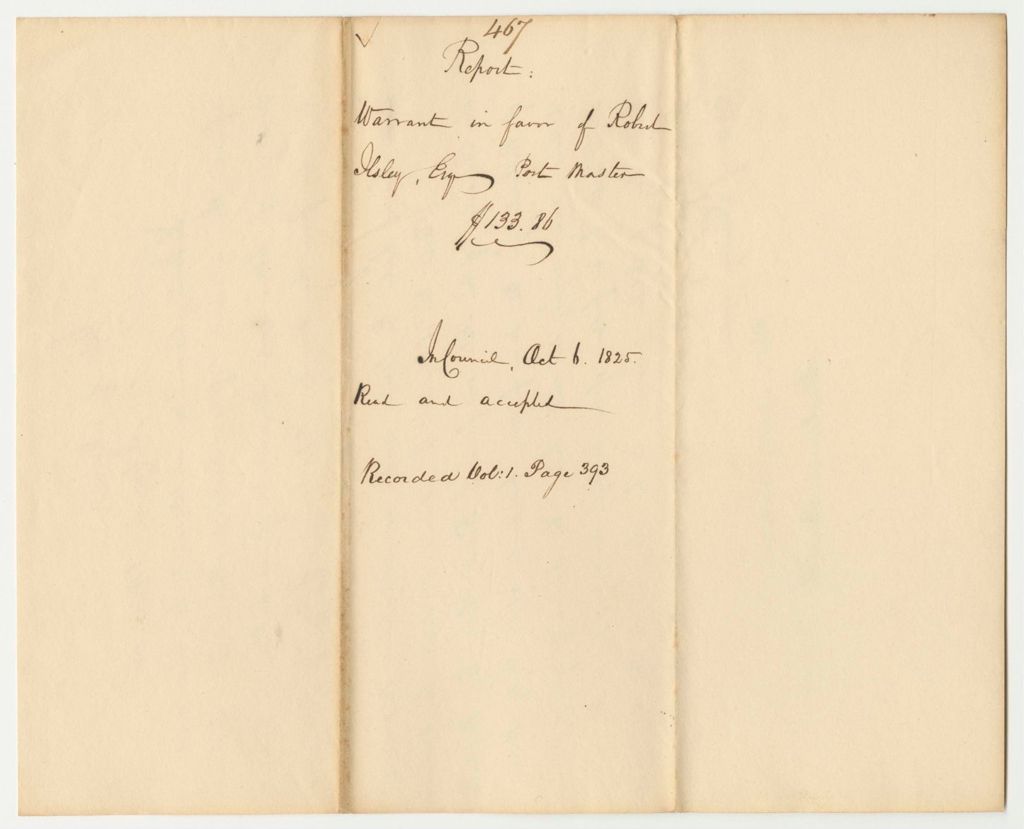 467
Report:
Warrant in favor of Robert
Ilsley, Esq Post Master
$133.86
In Council, Oct 6. 1825.
Read and accepted
Recorded Vol: 1. Page 393